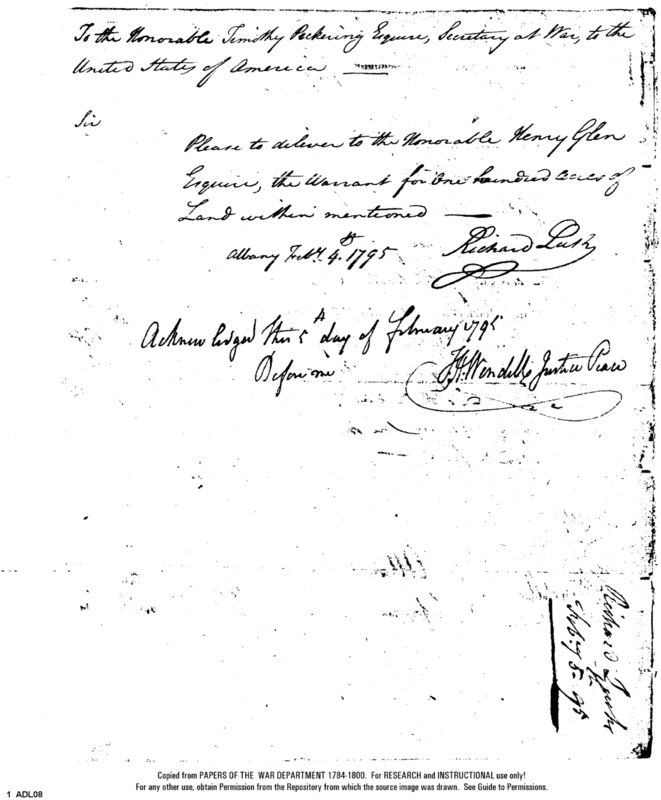 To the Honorable Timothy Pickering Esquire, Secretary at War, to the
United States of America
Sir
Please to deliver to the Honorable Henry Glen
Esquire, the Warrant for One hundred Acres of
Land within mentioned —
Albany Feby. 4th. 1795
Richard Lush
Acknowledged this 5th day of February 1795
Before me
H. Wendell Justice Peace
Richard Lush
Feby 5th 95
Copied from PAPERS OF THE WAR DEPARTMENT 1784-1800. For RESEARCH and INSTRUCTIONAL use only!
For any other use, obtain Permission from the Repository from which the source image was drawn. See Guide to Permissions.
1 ADL08